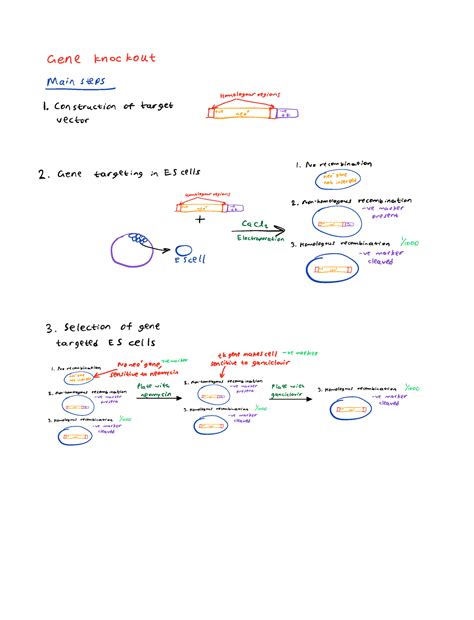 Gene knockout
Main steps
1. Construction of target
vector
Homologous regions
neo
-ve
tk
2. Gene targeting in ES cells
Homologous regions
+
CaCl2
Electroporation
ES cell
1. No recombination
neo gene
not inserted
2. Non-homologous recombination
-ve marker
present
3. Homologous recombination 1/1000
-ve marker
cleaved
3. Selection of gene
targeted ES cells
1. No recombination
neo gene
not inserted
No neo gene, -ve marker
sensitive to neomycin
2. Non-homologous recombination
-ve marker
present
3. Homologous recombination 1/1000
-ve marker
cleaved
Plate with
neomycin
tk gene makes cell -ve marker
sensitive to ganciclovir
2. Non-homologous recombination
-ve marker
present
3. Homologous recombination 1/1000
-ve marker
cleaved
Plate with
ganciclovir
3. Homologous recombination 1/1000
-ve marker
cleaved